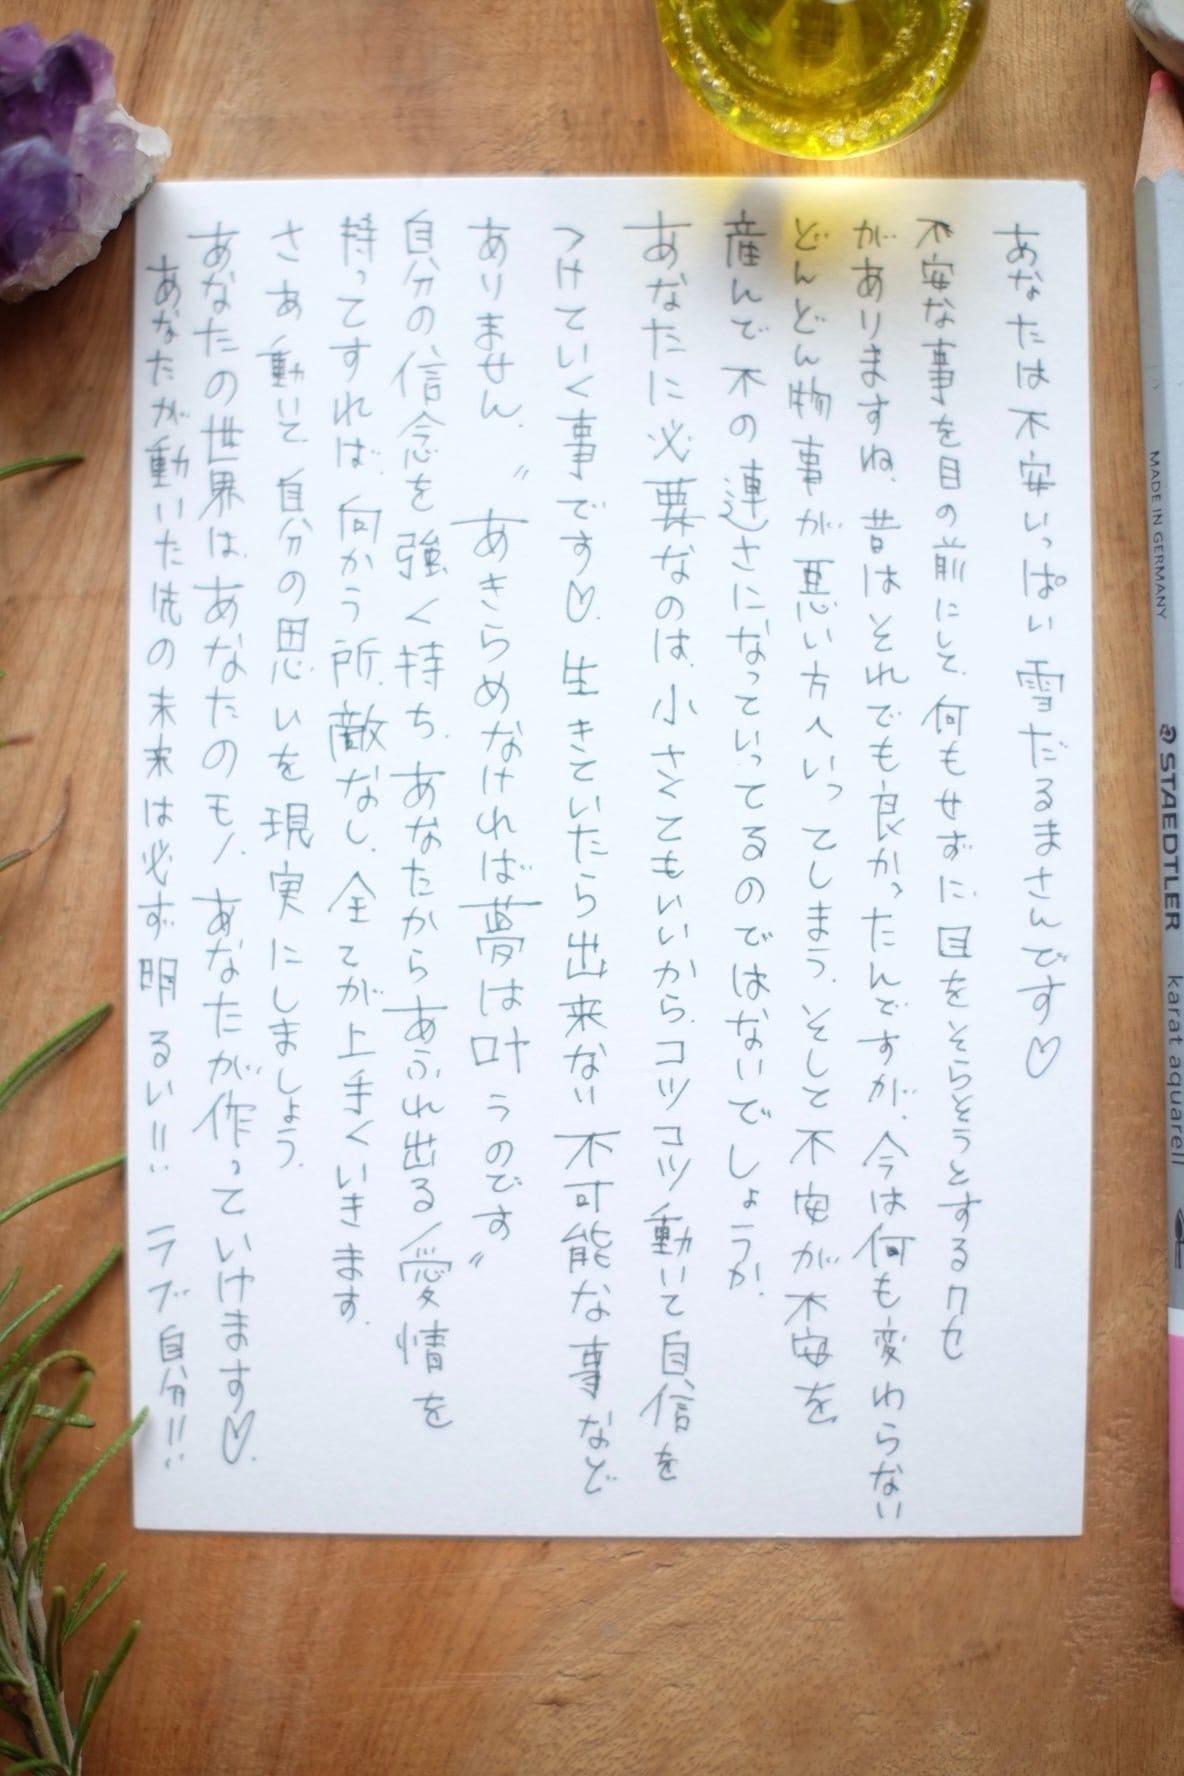 あなたは不安いっぱい雪だるまさんです♡
不安な事を目の前にして、何もせずに、目をそらそうとするクセ
がありますね。昔はそれでも良かったんですが、今は何も変わらない
どんどん物事が悪い方へいってしまう。そして不安が不安を
産んで不の連さになっていってるのではないでしょうか。
あなたに必要なのは、小さくてもいいから、コツコツ動いて自信を
つけていく事です♡。生きていたら出来ない不可能な事など
ありません。〝あきらめなければ夢は叶うのです〟
自分の信念を強く持ち、あなたからあふれ出る愛情を
持ってすれば、向かう所、敵なし、全てが上手くいきます。
さあ動いて自分の思いを現実にしましょう。
あなたの世界は、あなたのモノ、あなたが作っていけます♡。
あなたが動いた先の未来は必ず明るい!! ラブ自分!!
MADE IN GERMANY
STAEDTLER karat aquarell